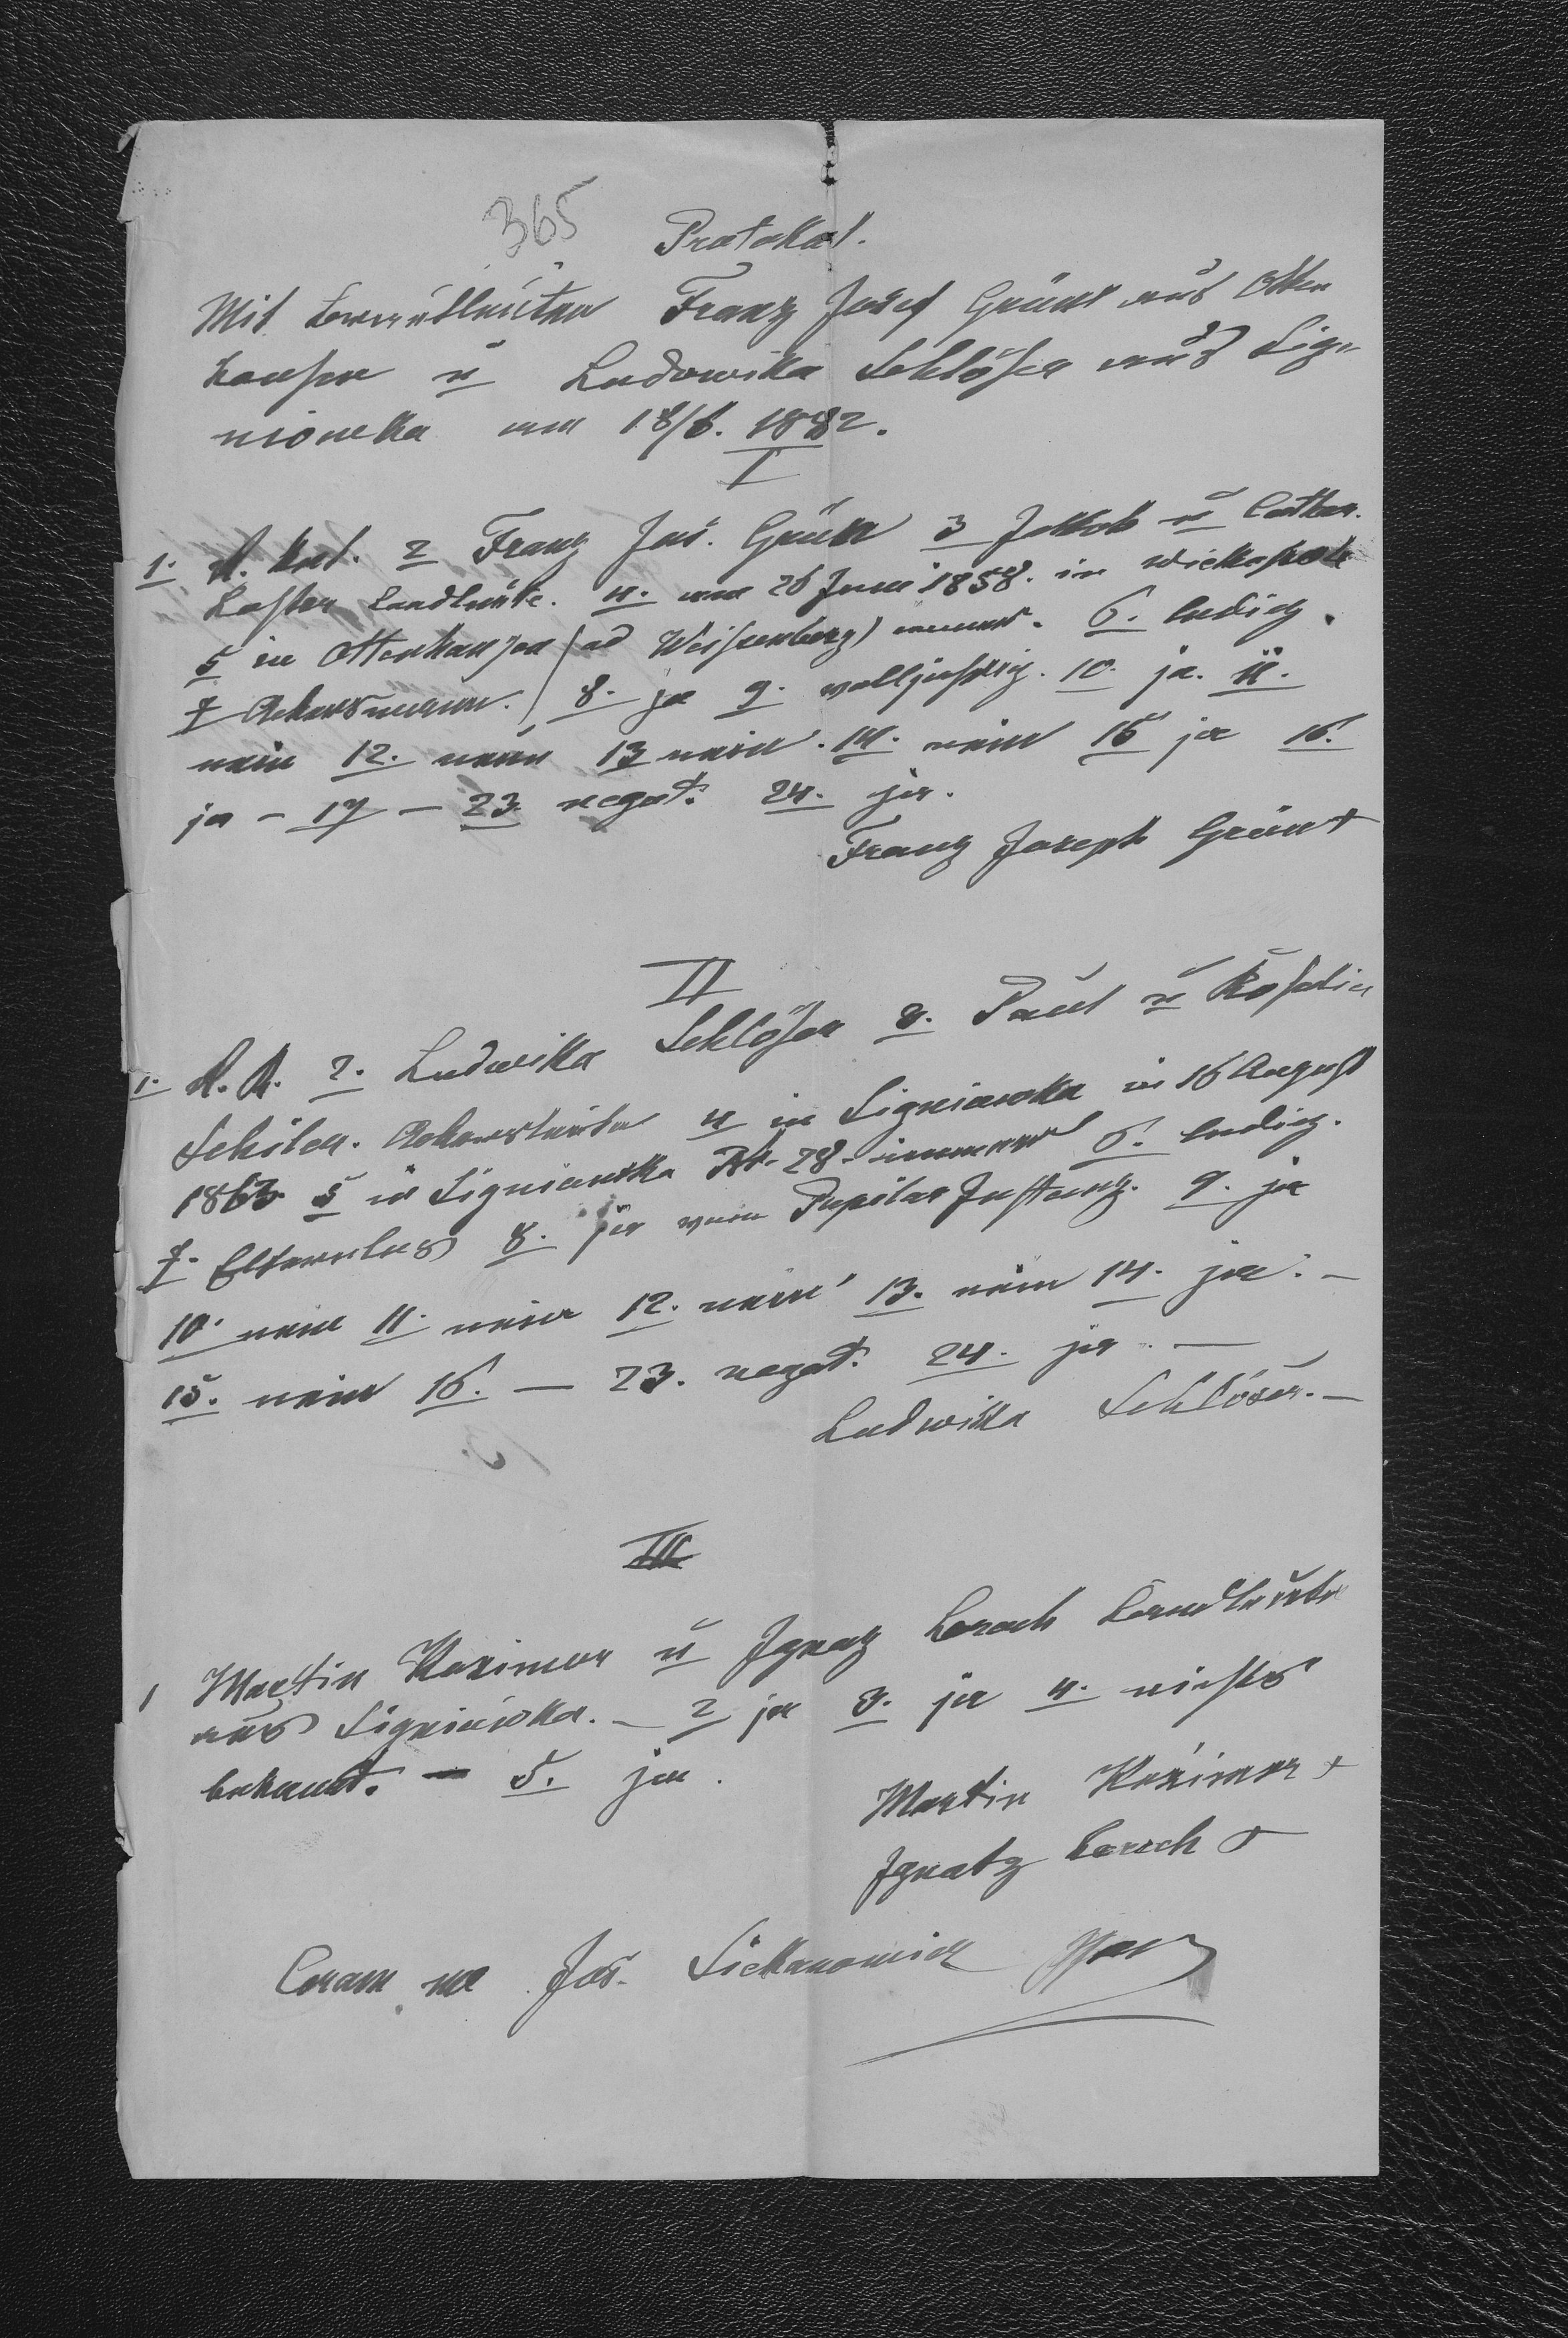 365 Protokol.
Mit Brautleuten Franz Josef Grünn aus Otten
hausen u Ludowika Schlöser aus Sig-
niowka am 18/6. 1882.
I
1. R. kat. 2 Franz Jos. Grünn 3 Jakob u Cathar.
Laster Landleute. 4. am 26 Juni 1858. in
5 in Ottenhausen (ad Weissenberg) immer. 6. ledig.
7 Ackersmann. 8. ja 9. volljährig. 10. ja. 11.
nein 12. nein 13 nein. 14. nein 15 ja 16.
ja - 17 - 23. negat. 24. ja.
Franz Joseph Grünn +
II
1. R. K. 2. Ludwika Schlöser 3. Paul u Rosalia
Schiler. Ackersleute 4 in Signiowka in 16 August
1863 5 in Signiowka Nr. 28. immer 6. ledig.
7. Elternlos 8. ja vom Pupilar Instanz. 9. ja
10. nein 11. nein 12. nein 13. nein 14. ja. -
15. nein 16. - 23. negat. 24. ja. -
Ludwika Schlöser. -
III
1 Martin Kazimer u Ignaz Lorsch Landleute
aus Signiowka. - 2 ja 3. ja 4. nichts
bekannt. - 5. ja.
Martin Kazimer +
Ignatz Lorsch +
Coram me Jos.